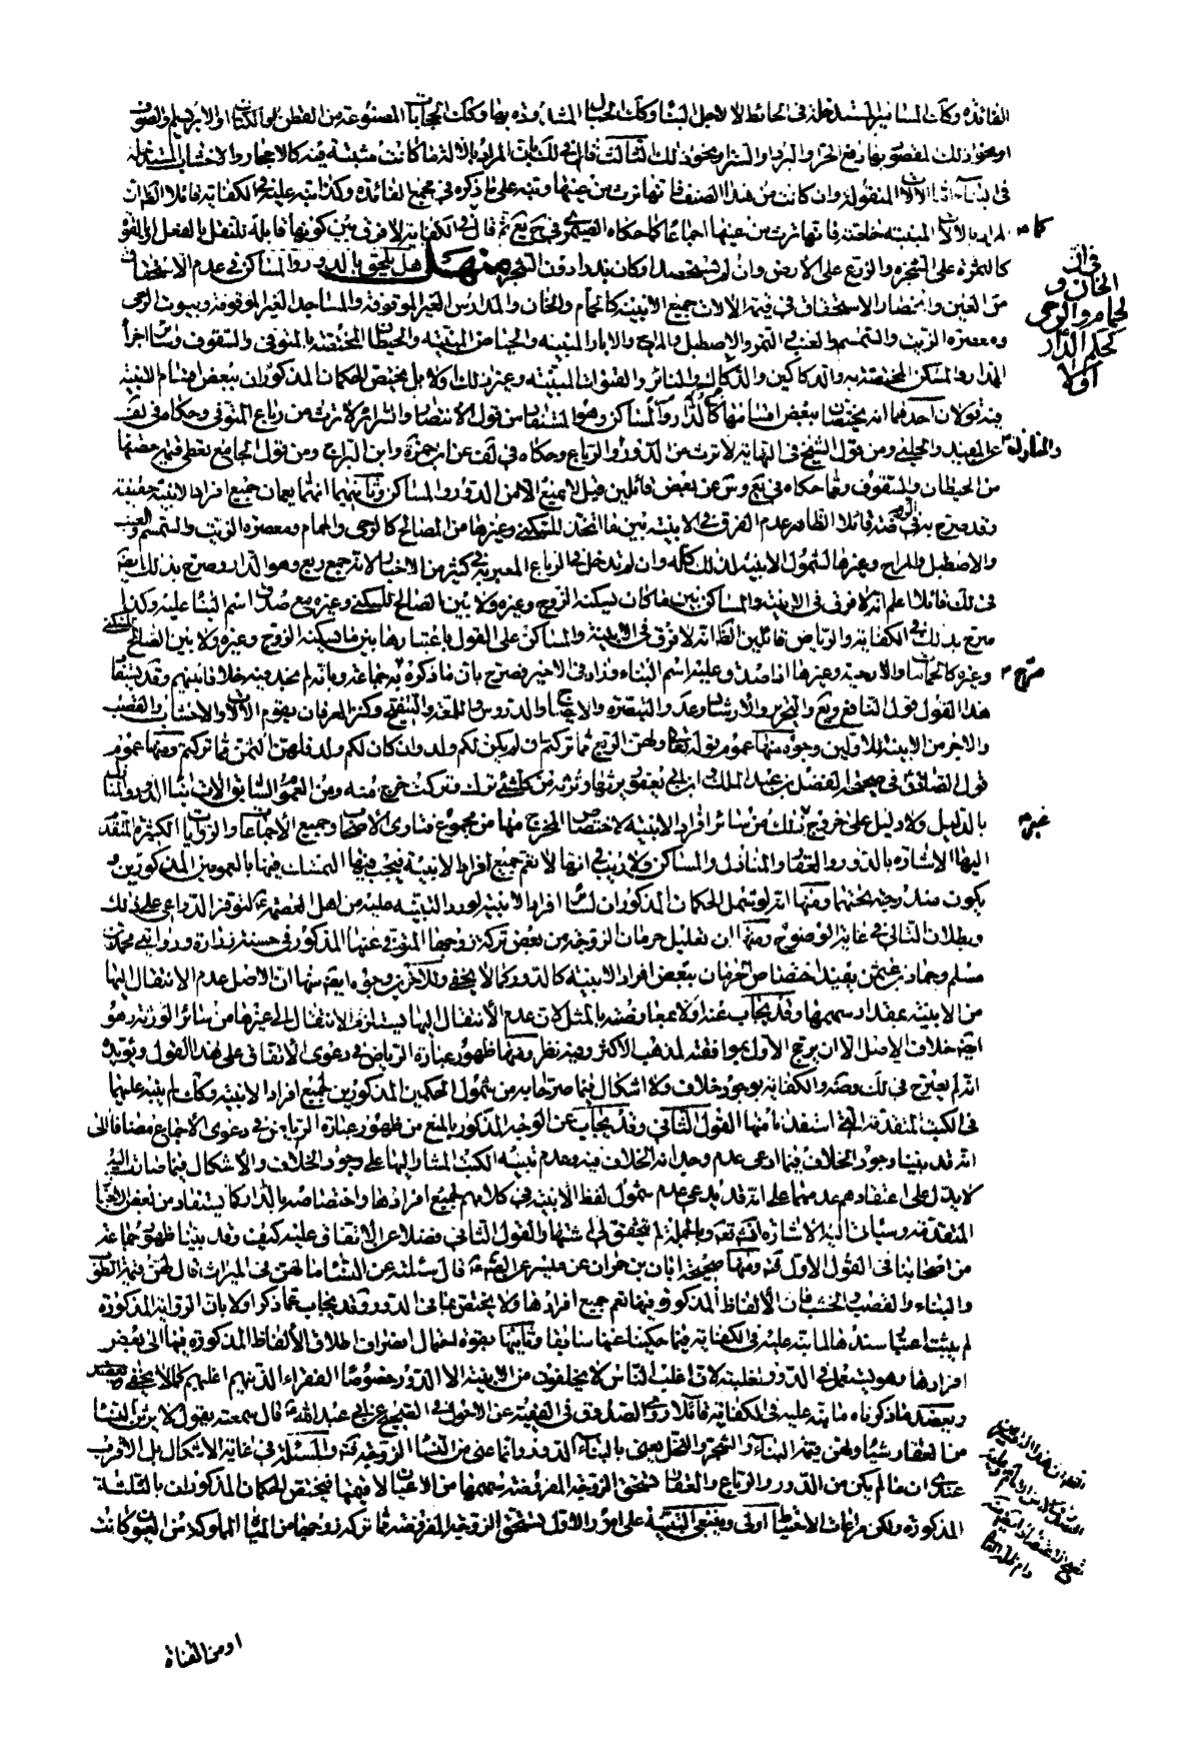 الفائدة وكك المسامير المستدخلة في الحائط لا لاجل البناء وكك الحبال المشدودة بها وكك الحجابات المصنوعة من القطن او الكتان او الابريسم والصوف
او نحو ذلك المقصود بها رفع الحر والبرد والستر ونحو ذلك الثالث قال في لك بان المراد بالالة ما كانت مثبتة فيه كالاحجار والاخشاب المستدخلة
في البناء اما الالات المنقولة وان كانت من هذا الصنف فانها ترث من عينها ونبه على ما ذكره في مجمع الفائدة وكذا نبه عليه في الكفاية قائلا الظ ان
المراد بالالات المبنية خلقته فانها ترث من عينها اجماعا كما حكاه الصيمري في ثم قال في الكفاية لا فرق بين كونها قابلة للنقل بالفعل او بالقوة
كالثمرة على الشجرة والزرع على الارض وان لم يستحصد او كان بذرا دون الشجر منهل هل يلحق بالدور والمساكن في عدم الاستحقاق
من العين وانحصار الاستحقاق في قيمة الالات جميع الابنية كالحمام والخان والمدارس الغير الموقوفة والمساجد الغير الموقوفة وبيوت الرحى
ومعصرة الزيت والسمسم والعنب والتمر والاصطبل والمراح والابار المبنية والحياض المبنية والحيطان المختصة بالمتوفى والسقوف وساير اجزاء
الدار والمسكن المختصة به والدكاكين والدكان والمنائر والقنوات المبنية وغير ذلك اولا بل يختص الحكمان المذكوران ببعض اقسام الابنية
فيه قولان احدهما انه يختصان ببعض اقسامها كالدار والمساكن وهو المستفاد من قول الانتصار والسرائر لا ترث من رباع المتوفى وحكاه في لف
عن المفيد والحلبي ومن قول الشيخ في النهاية لا ترث من الدور والرباع وحكاه في لف عن ابن حمزة وابن البراج ومن قول الجامع تعطى قيمة حصتها
من الحيطان والسقوف ومما حكاه في يع وس عن بعض قائلين قيل لا تمنع الا من الدور والمساكن وثانيهما انهما يعمان جميع افراد الابنية حقيقة
وقد صرح به في ضه قائلا الظاهر عدم الفرق في الابنية بين ما اتخذ للسكنى وغيرها من المصالح كالرحى والحمام ومعصرة الزيت والسمسم والعنب
والاصطبل والمراح وغيرها لشمول الابنية لذلك كله وان لم تدخل في الرباع المعبر به في كثير من الاخبار لانه جمع ربع وهو الدار وصرح بذلك ايضا
في لك قائلا اعلم انه لا فرق في الابنية والمساكن بين ما كان يسكنه الزوج وغيره ولا بين الصالح للسكنى وغيره مع صدق اسم البناء عليه وكذا
صرح بذلك في الكفاية والرياض قائلين الظ انه لا فرق في الابنية والمساكن على القول باعتبارها بين ما يسكنه الزوج وغيره ولا بين الصالح للسكنى
وغيره كالحمامات والارحية وغيرها اذا صدق عليه اسم البناء وزاد في الاخير فصرح بان ما ذكره به جماعة وبانه لم يجد فيه خلافا بينهم وقد يستفاد
هذا القول من قول النافع ويع والتحرير والارشاد وعد والتبصرة والايضاح والدروس واللمعة والتنقيح وكنز العرفان بقوم الالات والاخشاب والقصب
والاجر من الابنية للاولين وجوه منها عموم قوله تعالى ولهن الربع مما تركتم ان لم يكن لكم ولد وان كان لكم ولد فلهن الثمن مما تركتم ومنها عموم
قول الصادق ع في صحيحة الفضل بن عبد الملك وابن ابي يعفور يرثها وترثه من كل شيء ترك وتركت خرج منه ومن العموم السابق الارث من الدور والمنازل
بالدليل ولا دليل على خروج ذلك من سائر افراد الابنية لاختصاص المخرج منها من مجموع فتاوى الاصحاب وجميع الاجماعات والروايات الكثيرة المتقدم
اليها الاشارة بالدور والعقار والمنازل والمساكن ولا ريب في انها لا تعم جميع افراد الابنية فيجب فيها التمسك فيها بالعمومين المذكورين و
يكون مندرجة تحتها ومنها انه لو شمل الحكمان المذكوران لساير افراد الابنية لورد التنبيه عليه من اهل العصمة ع لتوفر الدواعي على ذلك
وبطلان التالي في غاية الوضوح ومنها ان تعليل حرمان الزوجة من بعض تركة زوجها المتوفى عنها المذكور في حسنة زرارة ورواتي محمد بن
مسلم وحماد بن عثمن يفيد اختصاص الحرمان ببعض افراد الابنية كالدور كما لا يخفى وللاخرين وجوه ايضا منها ان الاصل عدم الانتقال اليها
من الابنية بمقدار سهمها وقد يجاب عنه اولا بمعارضته بالمثل لان عدم الانتقال اليها يستلزم الانتقال الى غيرها من سائر الورثة وهو
ايضا خلاف الاصل الا ان يرجح الاول بموافقته لمذهب الاكثر وفيه نظر ومنها ظهور عبارة الرياض في دعوى الاتفاق على هذا القول ويؤيده
انه لم يصرح في لك وضه والكفاية بوجود خلاف ولا اشكال فيما صرحا به من شمول الحكمين المذكورين لجميع افراد الابنية وكك لم ينبه عليها
في الكتب المتقدمة التي استفدنا منها القول الثاني وقد يجاب عن الوجه المذكور بالمنع من ظهور عبارة الرياض في دعوى الاجماع مضافا الى
انه قد بينا وجود الخلاف فيما ادعى عدم وجدانه الخلاف فيه وعدم تنبيه الكتب المشار اليها على وجود الخلاف والاشكال فيما صارت اليه
لا يدل على اعتقادهم عدمهما على انه قد يدعى عدم شمول لفظ الابنية في كلامهم لجميع افرادها واختصاصه بالدار كما يستفاد من بعض الاخبار
المتقدمة وسياتي اليه الاشارة انشاء الله تعه وبالجملة لم يتحقق لي شهرة القول الثاني فضلا عن الاتفاق عليه كيف وقد بينا ظهور جماعة
من اصحابنا في القول الاول فت ومنها صحيحة ابان بن حمران عن ميسر عن الصادق ع قال سئلته عن النساء ما لهن في الميراث قال لهن قيمة الطوب
والبناء والقصب والخشب فان الالفاظ المذكورة فيها تعم جميع افرادها ولا يختص بما في الدور وقد يجاب عما ذكر اولا بان الرواية المذكورة
لم يثبت اعتبار سندها لما نبه عليه في الكفاية فيما حكينا عنها سابقا وثانيها بقوة احتمال انصراف اطلاق الالفاظ المذكورة فيها الى بعض
افرادها وهو المستعمل في الدور ونغلبته لان اغلب الناس لا يخلفون من الابنية الا الدور خصوصا الفقراء الذينهم اغلبهم كما لا يخفى
ويعضد ما ذكرناه ما نبه عليه في الكفاية قائلا روى الصدوق في الفقيه عن الاحول في الصحيح عن ابي عبد الله ع قال سمعته يقول لا يرثن النساء
من العقار شيئا ولهن قيمة البناء والشجر والنخل يعني بالبناء الدور وانما عنى من النساء الزوجة فت والمسئلة في غاية الاشكال بل الاقرب
عندي ان ما لم يكن من الدور والرباع والعقار تستحق الزوجة المفروضة سهمها من الاعيان لا قيمتها فيختص الحكمان المذكوران بالثلثة
المذكورة ولكن مراعات الاحتياط اولى وينبغي التنبيه على امور الاول تستحق الزوجة المفروضة مما تركه زوجها من المياه المملوكة من العيون كانت
كما
في ان
الخان و
الحمام والرحى
كحكم الدار
او لا
والمنازل
صرح
غيره
او من القناة